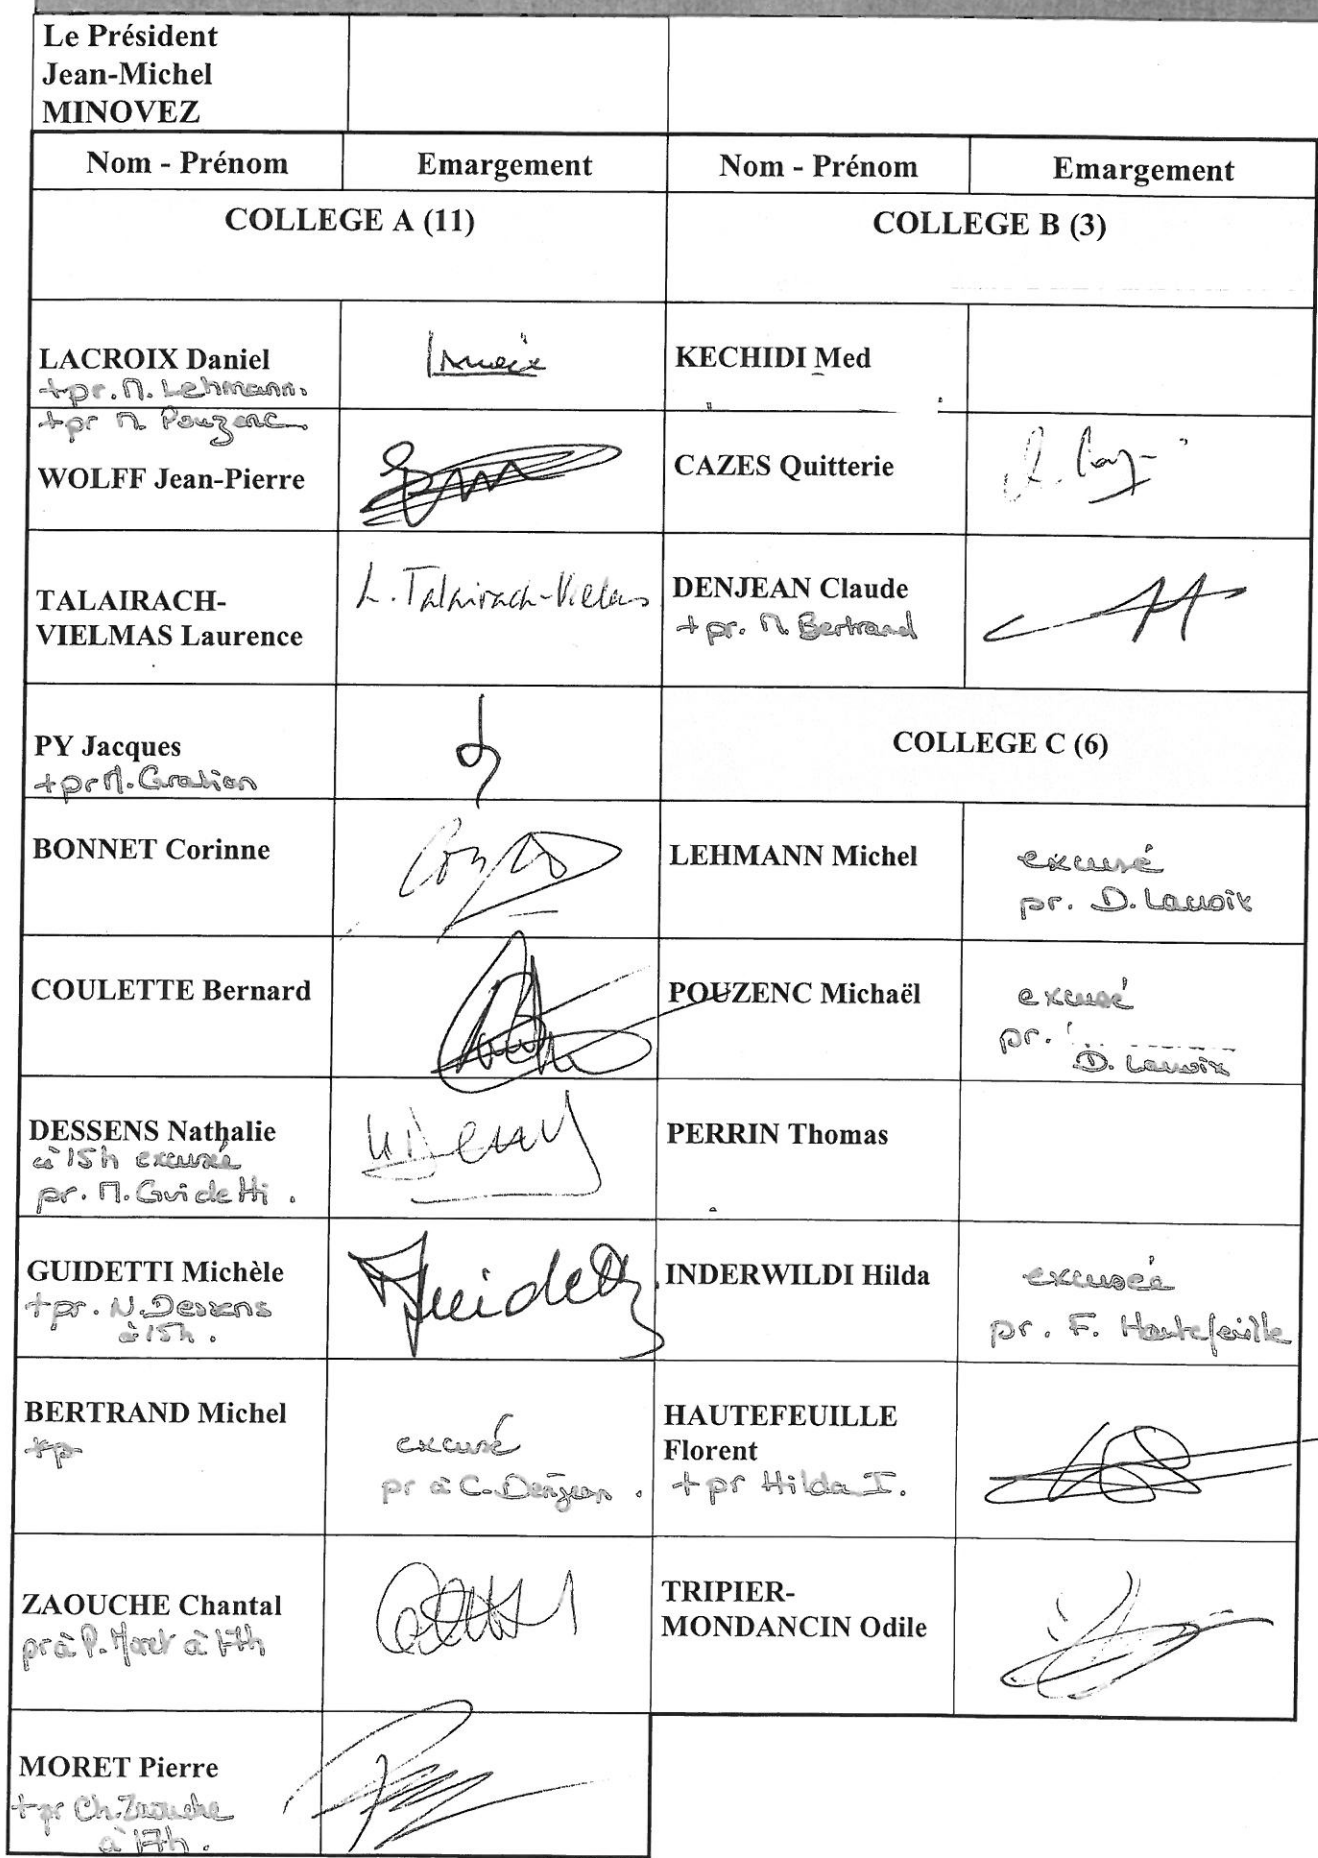 Le Président
Jean-Michel
MINOVEZ
Nom - Prénom
Emargement
Nom - Prénom
Emargement
COLLEGE A (11)
COLLEGE B (3)
LACROIX Daniel
+pr. M. Lehmann.
+pr M. Pouzenc
KECHIDI Med
WOLFF Jean-Pierre
CAZES Quitterie
TALAIRACH-
VIELMAS Laurence
L. Talairach-Vielmas
DENJEAN Claude
+ pr. M. Bertrand
PY Jacques
+pr M.
COLLEGE C (6)
BONNET Corinne
LEHMANN Michel
excusé
pr. D. Lacroix
COULETTE Bernard
POUZENC Michaël
excusé
pr.
D. Lacroix
DESSENS Nathalie
à 15h excusée
pr. M. Guidetti.
PERRIN Thomas
GUIDETTI Michèle
+pr. N. Dessens
à 15h.
Guidetti
INDERWILDI Hilda
excusée
pr. F. Hautefeuille
BERTRAND Michel
+p
excusé
pr à C. Denjean.
HAUTEFEUILLE
Florent
+ pr Hilda I.
ZAOUCHE Chantal
pr à P. Moret à 17h
TRIPIER-
MONDANCIN Odile
MORET Pierre
+pr Ch. Zaouche
à 17h.